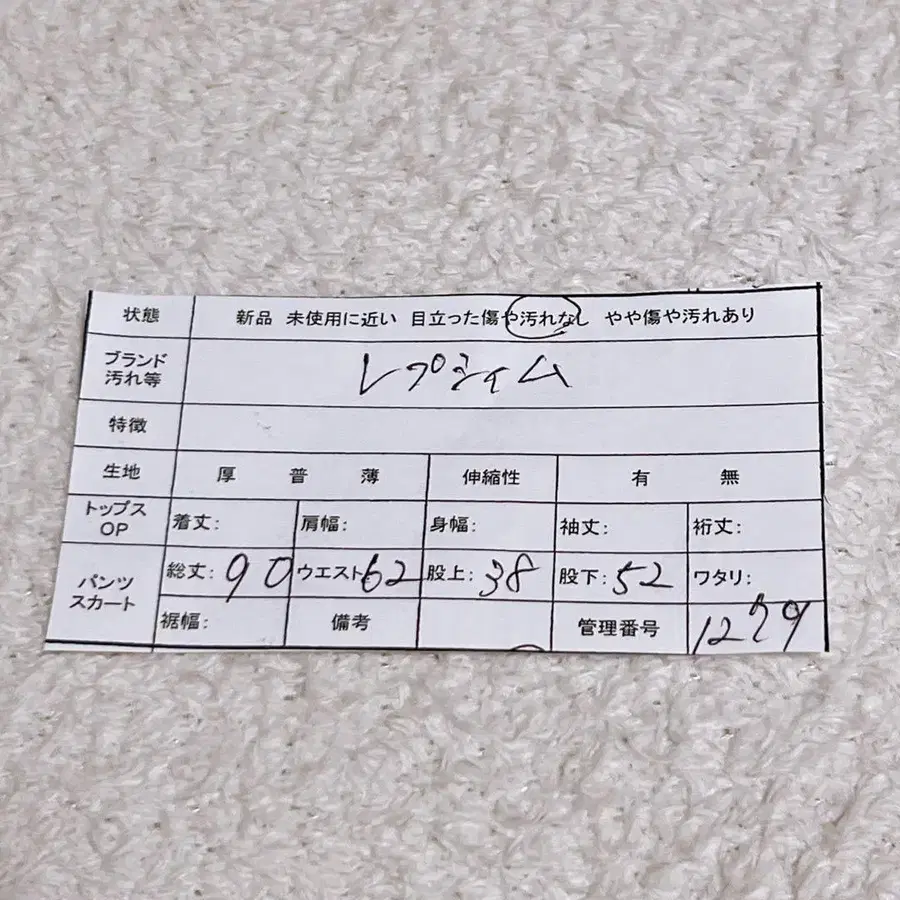 状態 新品 未使用に近い 目立った傷や汚れなし やや傷や汚れあり
ブランド
汚れ等 レプシィム
特徴
生地 厚 普 薄 伸縮性 有 無
トップス
OP 着丈: 肩幅: 身幅: 袖丈: 裄丈:
パンツ
スカート 総丈: 90 ウエスト 62 股上: 38 股下: 52 ワタリ:
裾幅: 備考 管理番号 1279